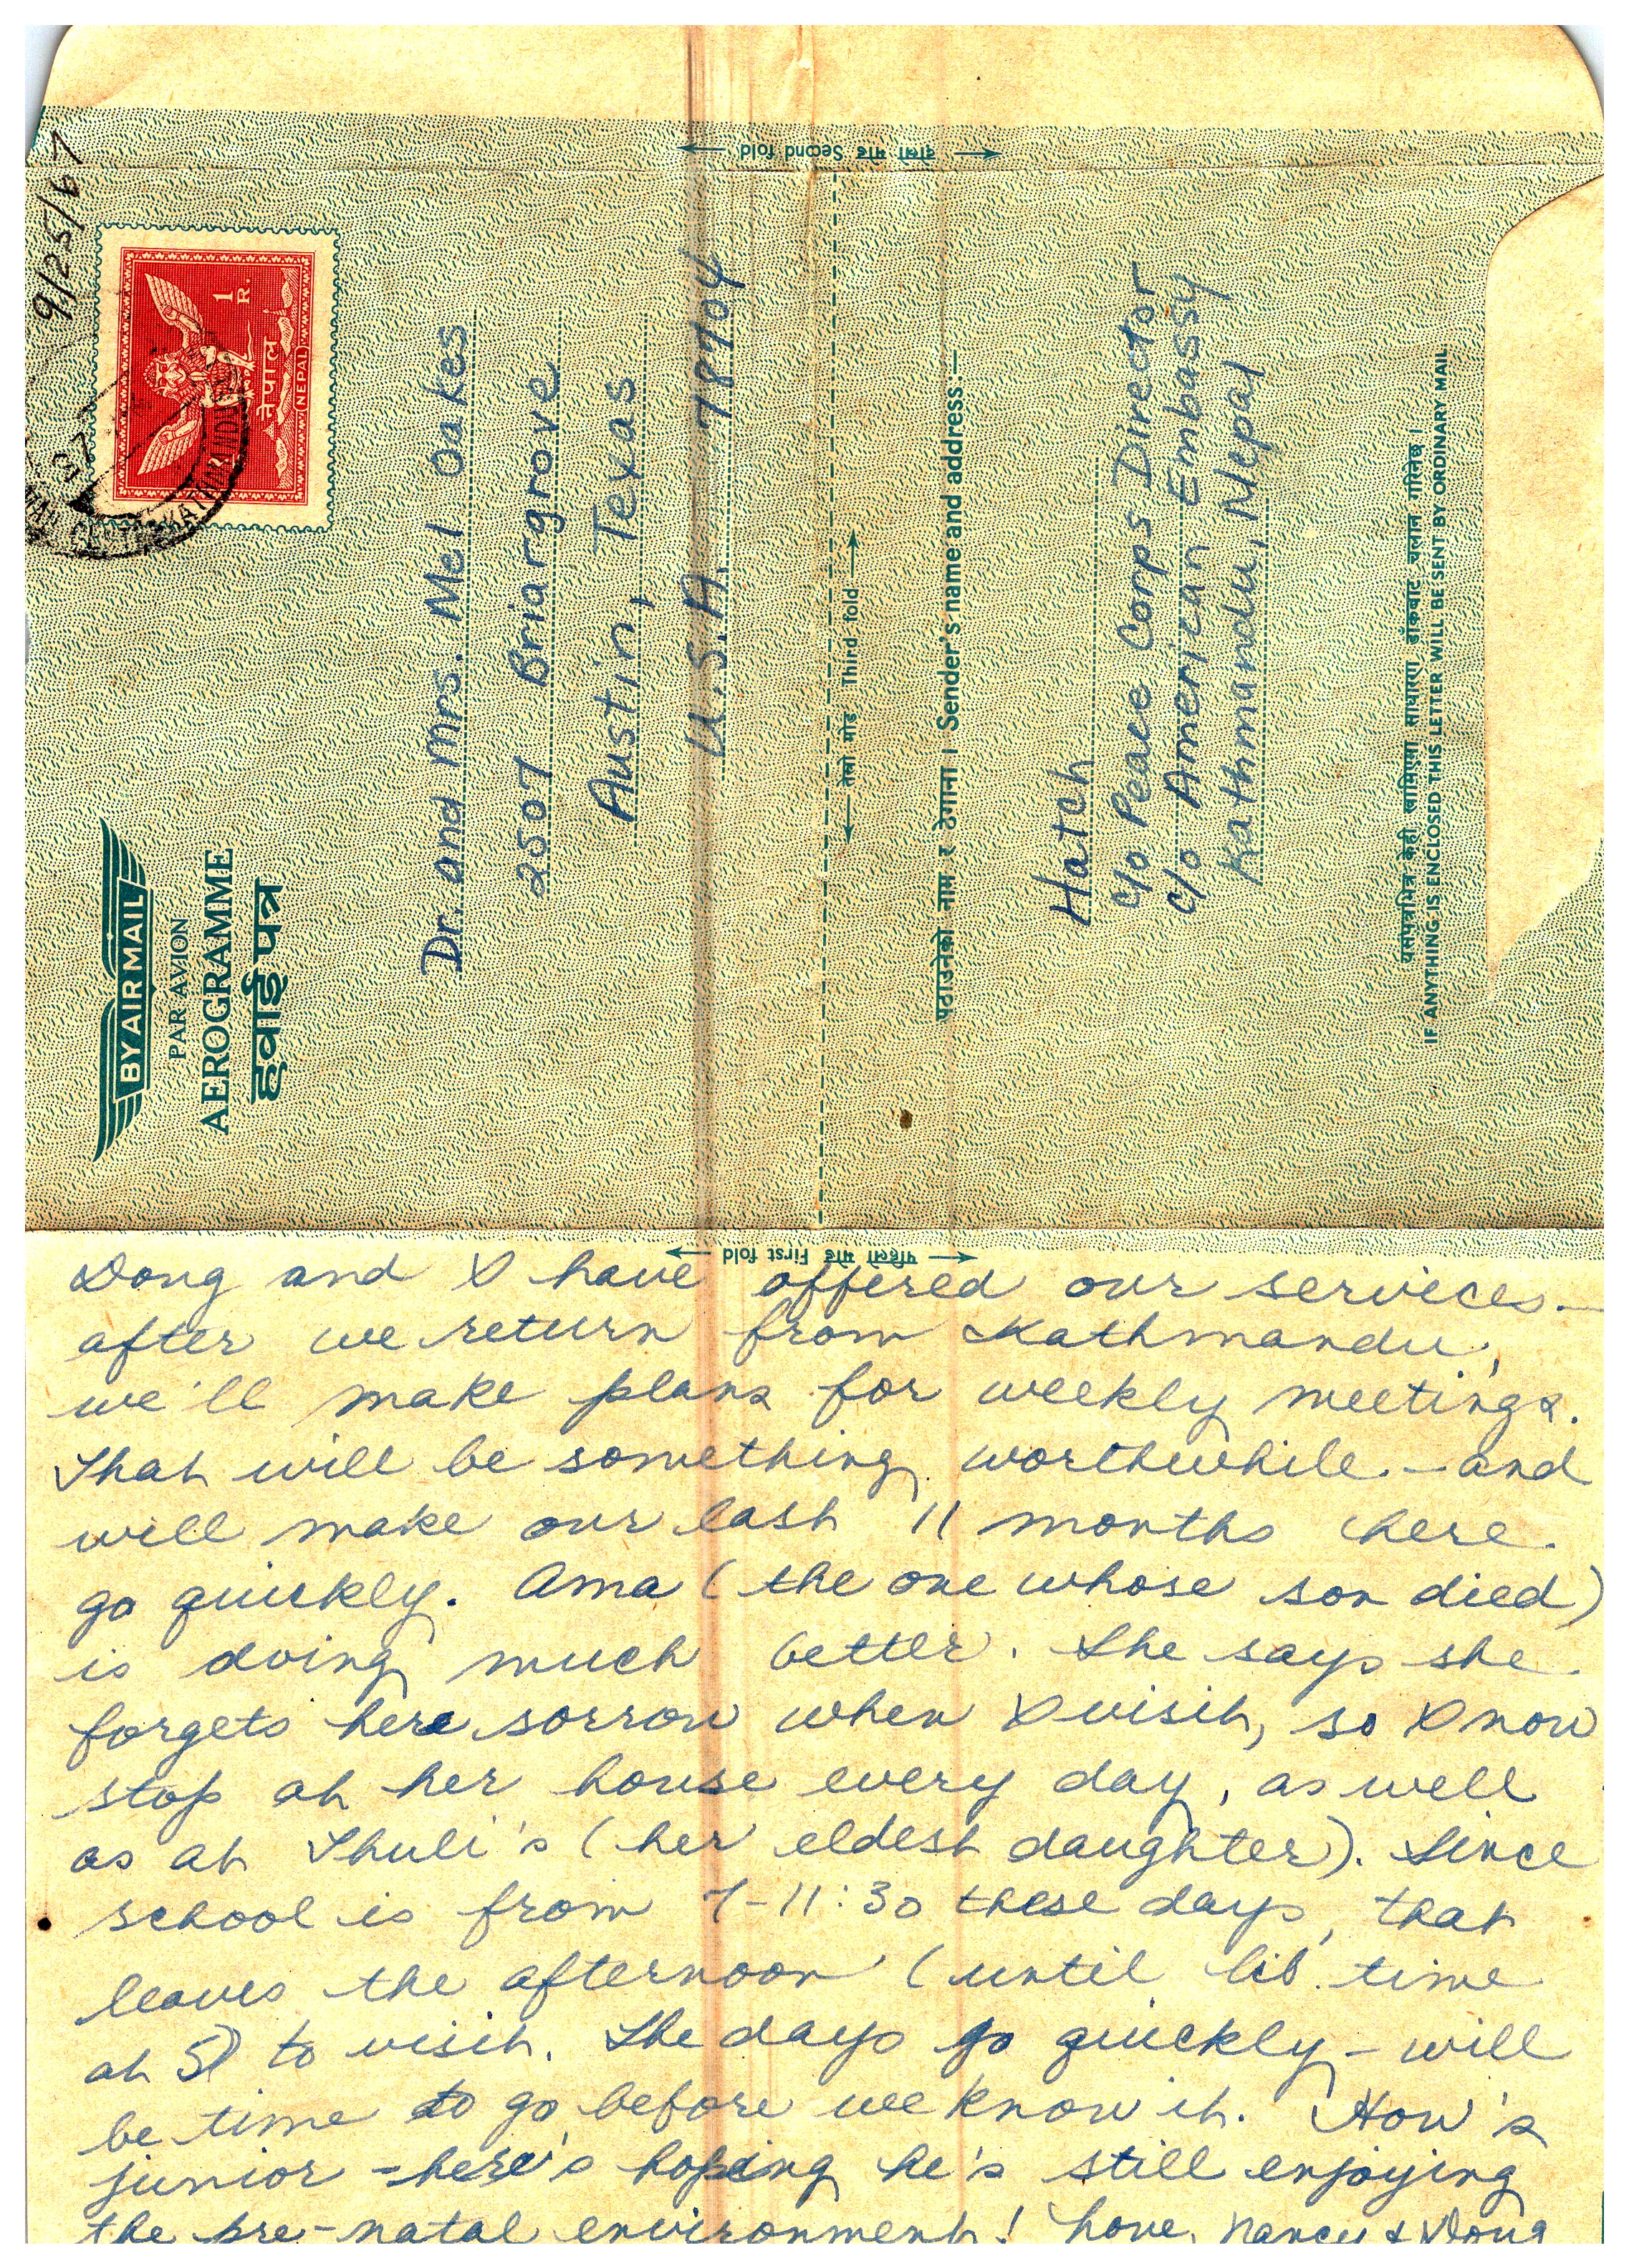 9/25/67
1 R.
नेपाल
NEPAL
KATHMANDU
BY AIR MAIL
PAR AVION
AEROGRAMME
हवाई पत्र
Dr. and Mrs. Mel Oakes
2507 Briargrove
Austin, Texas
U.S.A. 78704
दोस्रो मोड Second fold
तेस्रो मोड Third fold
पठाउनेको नाम र ठेगाना । Sender's name and address:—
Hatch
c/o Peace Corps Director
c/o American Embassy
Kathmandu, Nepal
यसपत्रभित्र केही खामिएमा साधारण डाँकबाट चलान गरिनेछ ।
IF ANYTHING IS ENCLOSED THIS LETTER WILL BE SENT BY ORDINARY MAIL.
पहिलो मोड First fold
Doug and I have offered our services—
after we return from Kathmandu,
we'll make plans for weekly meetings.
That will be something worthwhile—and
will make our last 11 months here
go quickly. Ama (the one whose son died)
is doing much better. She says she
forgets here sorrow when I visit, so I now
stop at her house every day, as well
as at Thuli's (her eldest daughter). Since
school is from 7-11:30 these days, that
leaves the afternoon (until lib. time
at 5) to visit. The days go quickly - will
be time to go before we know it. How's
junior - here's hoping he's still enjoying
the pre-natal environment! Love, Nancy & Doug